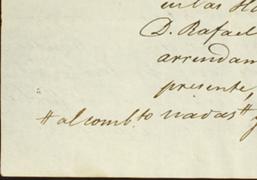 en las Ha
D. Rafael
arrendam
presente,
# al comb.to nadas # y